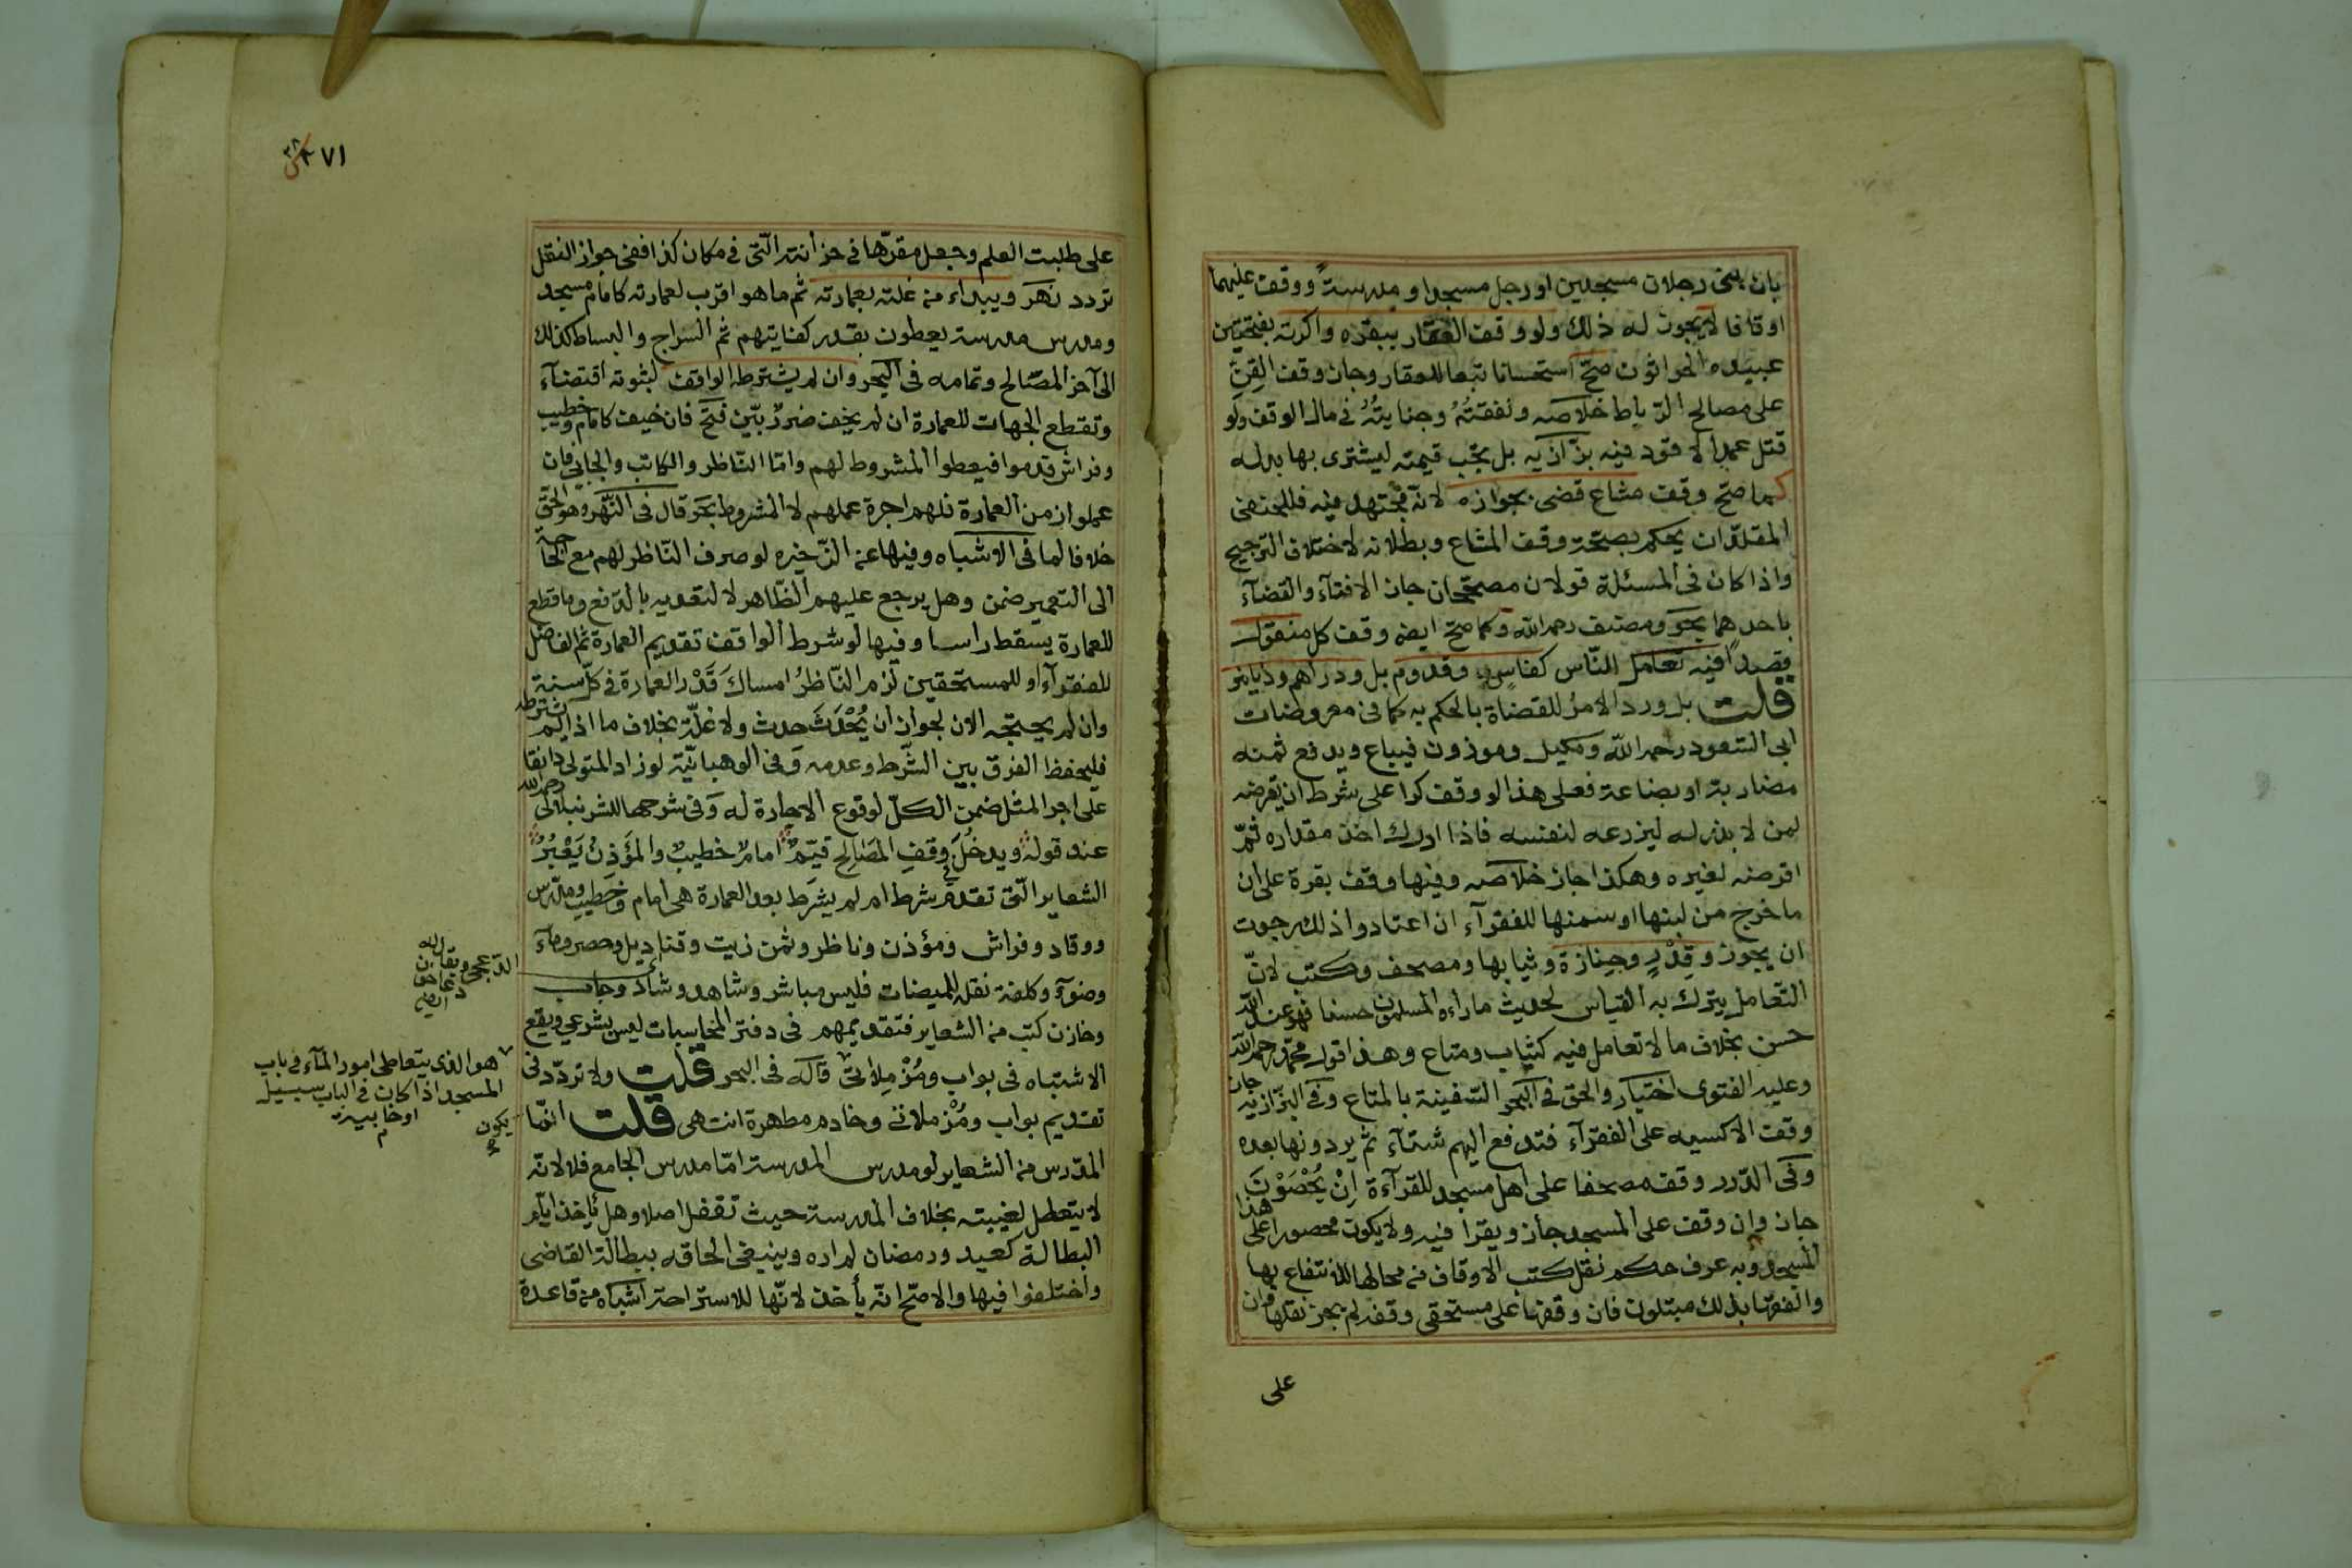 بان بنى رجلان مسجدين او رجل مسجدا ومدرسةً ووقف عليهما
اوقافا لا يجوز له ذلك ولو وقف العقار ببقره واكرته بفتحتين
عبيده الحراثون صحّ استحسانا تبعا للعقار وجاز وقف القِنّ
على مصالح الرّباط خلاصه ونفقتُهُ وجنايتُهُ في مال الوقف ولو
قتل عمداً لا قود فيه بزّازيه بل تجب قيمته ليشترى بها بدله
كما صحّ وقف مشاع قضى بجوازه لانّه مجتهد فيه فللحنفى
المقلّد ان يحكم بصحّة وقف المشاع وبطلانه لاختلاف الترجيح
واذا كان في المسئلة قولان مصحّحان جاز الافتآء والقضآء
باحدهما بحر ومصنف رحمه الله وكما صحّ ايضه وقف كل منقول
قصداً فيه تعامل النّاس كفاسٍ وقدوم بل ودراهم ودنانير
قلت بل ورد الامرُ للقضاة بالحكم به كما في معروضات
ابى السّعود رحمه الله ومكيل وموزون فيباع ويدفع ثمنه
مضاربة او بضاعة فعلى هذا لو وقف كرا على شرط ان يقرضه
لمن لا بذر له ليزرعه لنفسه فاذا ادرك اخذ مقداره ثمّ
اقرضه لغيره وهكذا جاز خلاصه وفيها وقف بقرة على ان
ما خرج من لبنها او سمنها للفقرآء ان اعتادوا ذلك رجوت
ان يجوز وقِدْرٍ وجنازة وثيابها ومصحف وكتب لانّ
التّعامل يترك به القياس لحديث ما رآه المسلمون حسنا فهو عند الله
حسن بخلاف ما لا تعامل فيه كثياب ومتاع وهذا قول محمّد رحمه الله
وعليه الفتوى اختيار والحق في البحر السّفينة بالمتاع وفي البزّازيه جاز
وقف الاكسيه على الفقرآء فتدفع اليهم شتآء ثم يردونها بعده
وفى الدّرر وقف مصحفا على اهل مسجد للقرآءة اِنْ يُحْصَوْنَ
جاز وان وقف على المسجد جاز ويقرا فيه ولا يكون محصورا على هذا
المسجد وبه عرف حكم نقل كتب الاوقاف من محالها للانتفاع بها
والفقها بذلك مبتلون فان وقفها على مستحقى وقفه لم يجز نقلها وان
على
٢٧١
٣٨
على طلبت العلم وجعل مقرّها في خزانته الّتى في مكان كذا ففى جواز النقل
تردد نهَر ويبداء من غلته بعمارته ثم ما هو اقرب لعمارته كامام مسجد
ومدرس مدرسة يعطون بقدر كفايتهم ثم السراج والبساط كذلك
الى آخر المصّالح وتمامه فى البحر وان لم يشترطه الواقف لثبوته اقتضآء
وتقطع الجهات للعمارة ان لم يخف ضررٌ بيّن فتح فان خيف كامام وخطيب
وفراش قدموا فيعطوا المشروط لهم وامّا النّاظر والكاتب والجابى فان
عملوا زمن العمارة فلهم اجرة عملهم لا المشروط بحر قال فى النّهر وهو الحقّ
خلافا لما فى الاشباه وفيها عن الذّخيره لو صرف النّاظر لهم مع الحاجة
الى التعمير ضمن وهل يرجع عليهم الظّاهر لا لتعديه بالدّفع وما قطع
للعمارة يسقط راسا وفيها لو شرط الواقف تقديم العمارة ثم الفاضل
للفقرآء او للمستحقين لزم النّاظرُ امساكَ قَدْر العمارة في كلّ سنة
وان لم يحتجه الان لجواز ان يُحْدَثَ حدث ولا غلّة بخلاف ما اذا لم يشترطه
فليحفظ الفرق بين الشّرط وعدمه وفى الوهبانيّة لو زاد المتولى دانقا
على اجر المثل ضمن الكلّ لوقوع الاجارة له وفى شرحها للشرنبلالى رحمه الله
عند قوله ويدخُلُ في وقفِ المصَالِحِ قيّمٌ امامٌ خطيبٌ والمؤَذنُ يَعْبُرُ
الشعاير الّتى تقدم شرط ام لم يشرط بعد العمارة هى امام وخطيب ومدّرس
ووقاد وفراش ومؤذن وناظر وثمن زيت وقناديل وحصر ومآء
وضوء وكلفة نقله للميضات فليس مباشر وشاهد وشادّ وجاب
وخازن كتب من الشعاير فتقديمهم فى دفتر المحاسبات ليس بشرعي ويقع
الاشتباه فى بواب ومُزْمِلاتىّ قاله فى البحر قلت ولا تردّد في
تقديم بواب ومُزْملاتى وخادم مطهرة انتهى قلت انّما يكون
المدّرس من الشعاير لو مدرس المدرسة امّا مدرس الجامع فلا لانّه
لا يتعطل لغيبته بخلاف المدرسة حيث تقفل اصلا وهل ياخذ ايّام
البطالة كعيد ورمضان لم اره وينبغى الحاقه ببطالة القاضى
واختلفوا فيها والاصحّ انّه يأخذ لانّها للاستراحة اشباه من قاعدة
هو الذى يتعاطى امور المآء في باب
المسجد اذا كان في الباب سبيل
او خابية